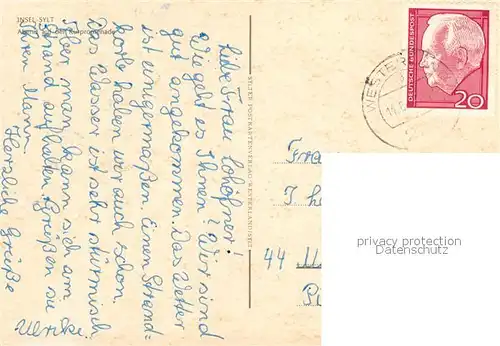 INSEL SYLT
Abend auf der Kurpromenade
Liebe Frau Lohöfner!
Wie geht es Ihnen? Wir sind
gut angekommen. Das Wetter
ist einigermaßen. Einen Strand=
korb haben wir auch schon.
Das Wasser ist sehr stürmisch.
Aber man kann sich am
Strand aufhalten. Grüßen sie
Ihren Mann.
Herzliche Grüße
Ulrike.
SYLTER POSTKARTENVERTRIEB WESTERLAND/SYLT
WESTER
DEUTSCHE BUNDESPOST
20
Fra
44
privacy protection
Datenschutz